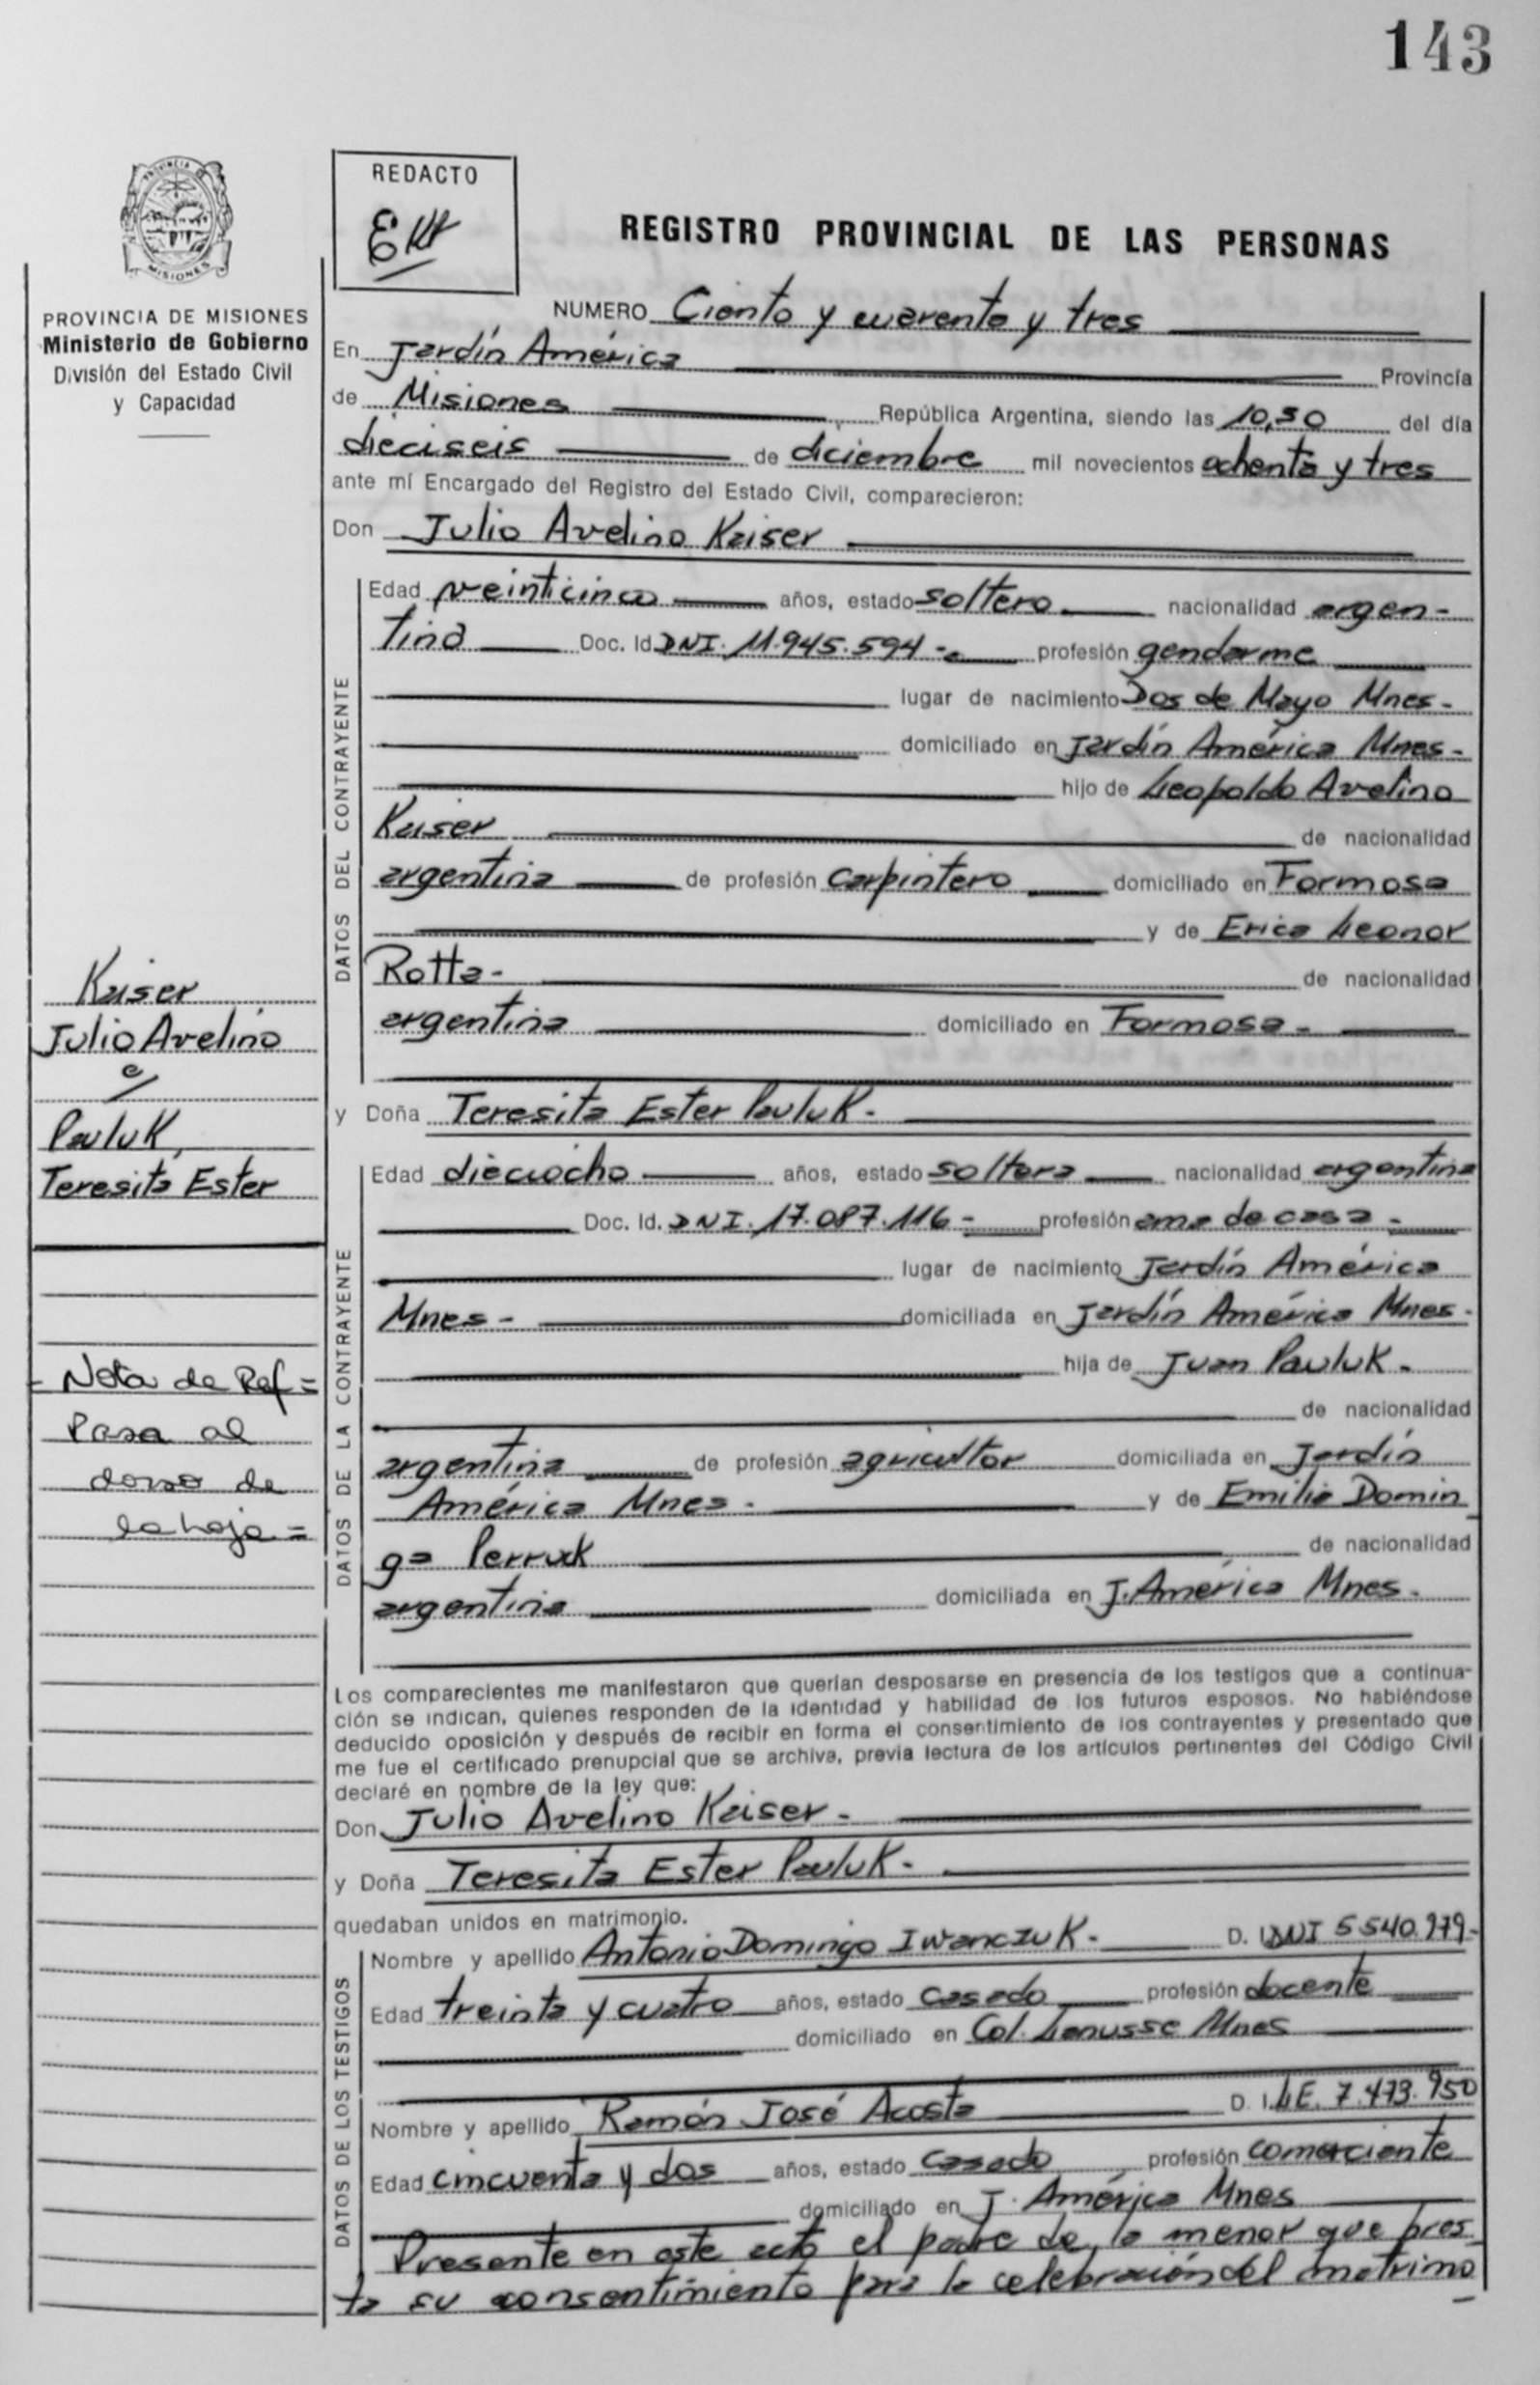 143
REDACTO
REGISTRO PROVINCIAL DE LAS PERSONAS
MISIONES
PROVINCIA DE MISIONES
Ministerio de Gobierno
División del Estado Civil
y Capacidad
NUMERO Ciento y cuarenta y tres
En Jardín América Provincia
de Misiones República Argentina, siendo las 10,30 del día
dieciseis de diciembre mil novecientos ochenta y tres
ante mí Encargado del Registro del Estado Civil, comparecieron:
Don Julio Avelino Kaiser
DATOS DEL CONTRAYENTE
Edad veinticinco años, estado soltero nacionalidad argen-
tina Doc. Id DNI. 11.945.594 - profesión gendarme
lugar de nacimiento Dos de Mayo Mnes -
domiciliado en Jardín América Mnes -
hijo de Leopoldo Avelino
Kaiser de nacionalidad
argentina de profesión carpintero domiciliado en Formosa
y de Erica Leonor
Rotta - de nacionalidad
argentina domiciliado en Formosa -
Kaiser
Julio Avelino
c/
Pauluk,
Teresita Ester
y Doña Teresita Ester Pauluk -
DATOS DE LA CONTRAYENTE
Edad dieciocho años, estado soltera nacionalidad argentina
Doc. Id. DNI. 17.087.116 - profesión ama de casa -
lugar de nacimiento Jardín América
Mnes - domiciliada en Jardín América Mnes -
hija de Juan Pauluk -
de nacionalidad
argentina de profesión agricultor domiciliada en Jardín
América Mnes - y de Emilia Domin
ga Perruk de nacionalidad
argentina domiciliada en J. América Mnes -
- Nota de Ref =
Pasa al
dorso de
la hoja =
Los comparecientes me manifestaron que querían desposarse en presencia de los testigos que a continua-
ción se indican, quienes responden de la identidad y habilidad de los futuros esposos. No habiéndose
deducido oposición y después de recibir en forma el consentimiento de los contrayentes y presentado que
me fue el certificado prenupcial que se archiva, previa lectura de los artículos pertinentes del Código Civil
declaré en nombre de la ley que:
Don Julio Avelino Kaiser -
y Doña Teresita Ester Pauluk -
quedaban unidos en matrimonio.
DATOS DE LOS TESTIGOS
Nombre y apellido Antonio Domingo Iwanczuk - D. I. DNI 5.540.979 -
Edad treinta y cuatro años, estado casado profesión docente
domiciliado en Col. Lanusse Mnes
Nombre y apellido Ramón José Acosta D. I. LE. 7.473.950
Edad cincuenta y dos años, estado casado profesión comerciante
domiciliado en J. América Mnes
Presente en este acto el padre de la menor que pres
ta su consentimiento para la celebración del matrimo
-